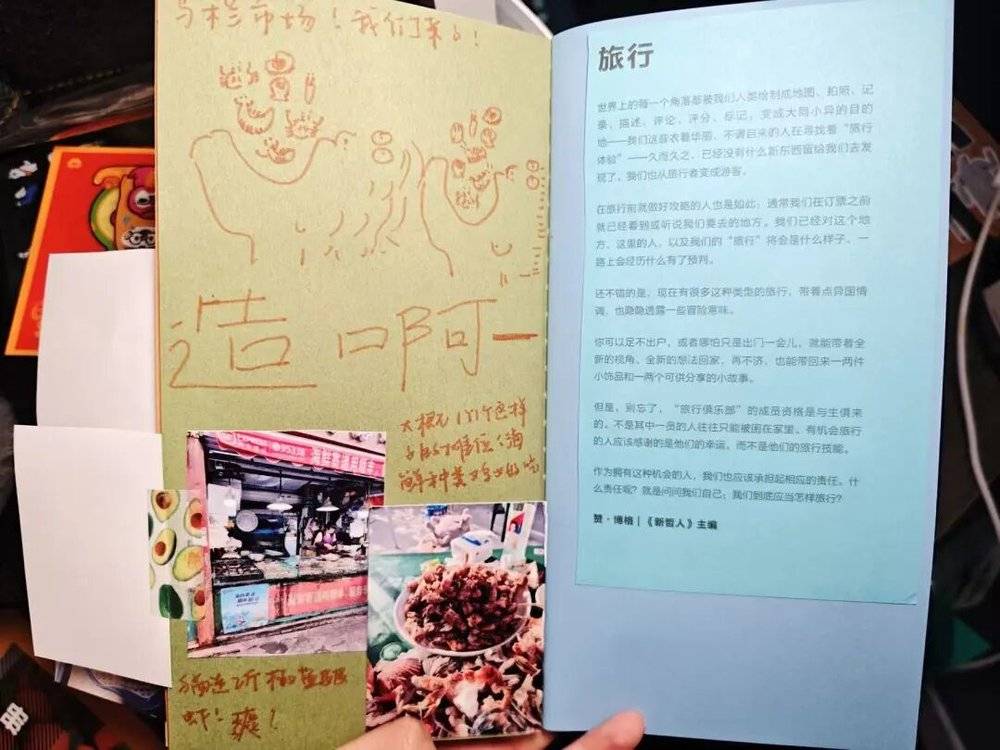 乌杉市场！我们来了！
造 口啊一
虾！爽！
旅行
世界上的每一个角落都被我们人类绘制成地图、拍照、记
录、描述、评论、评分、标记，变成大同小异的目的
地——我们这些衣着华丽、不请自来的人在寻找着“旅行
体验”——久而久之，已经没剩什么新东西留给我们去发
现了，我们也从旅行者变成游客。
在旅行前就做好攻略的人也是如此，通常我们在订票之前
就已经看到或听说我们要去的地方。我们已经对这个地
方、这里的人，以及我们的“旅行”将会是什么样子、一
路上会经历什么有了预判。
还不错的是，现在有很多这种类型的旅行，带着点异国情
调，也隐隐透露一些冒险意味。
你可以足不出户，或者哪怕只是出门一会儿，就能带着全
新的视角、全新的想法回家，再不济，也能带回来一两件
小饰品和一两个可供分享的小故事。
但是，别忘了，“旅行俱乐部”的成员资格是与生俱来
的，不是其中一员的人往往只能被困在家里。有机会旅行
的人应该感谢的是他们的幸运，而不是他们的旅行技能。
作为拥有这种机会的人，我们也应该承担起相应的责任。什
么责任呢？就是问问我们自己：我们到底应当怎样旅行？
赞·博格｜《新哲人》主编